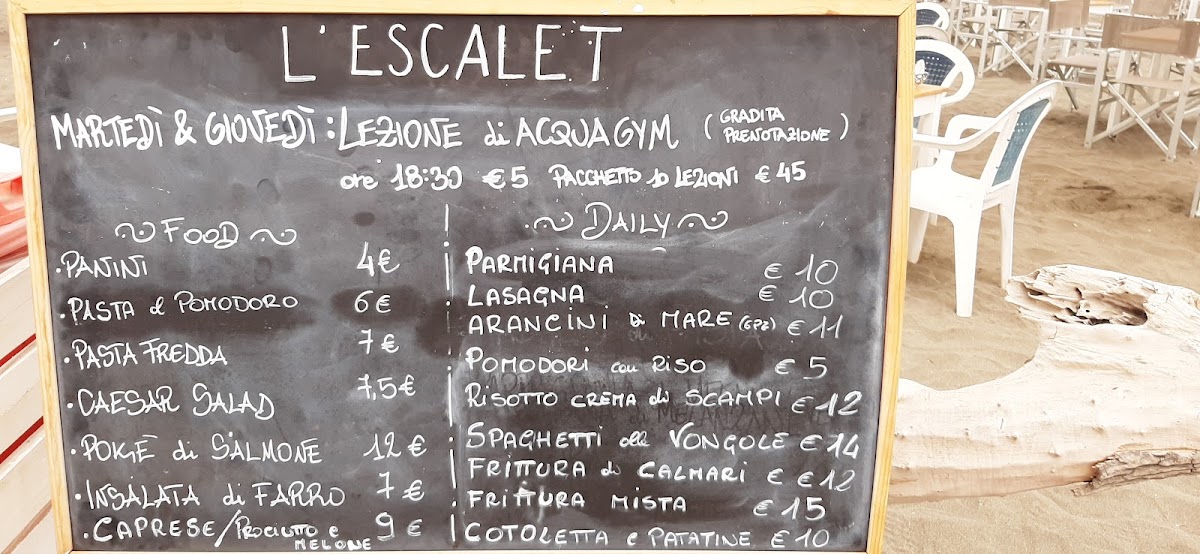 L'ESCALET
MARTEDÌ & GIOVEDÌ: LEZIONE di ACQUAGYM (GRADITA PRENOTAZIONE)
ore 18:30 €5 PACCHETTO 10 LEZIONI €45
FOOD
·PANINI 4€
·PASTA al POMODORO 6€
·PASTA FREDDA 7€
·CAESAR SALAD 7,5€
·POKE di SALMONE 12€
·INSALATA di FARRO 7€
·CAPRESE/PROCIUTTO e MELONE 9€
DAILY
PARMIGIANA €10
LASAGNA €10
ARANCINI di MARE (6PZ) €11
POMODORI con RISO €5
RISOTTO CREMA di SCAMPI €12
SPAGHETTI alle VONGOLE €14
FRITTURA di CALMARI €12
FRITTURA MISTA €15
COTOLETTA e PATATINE €10